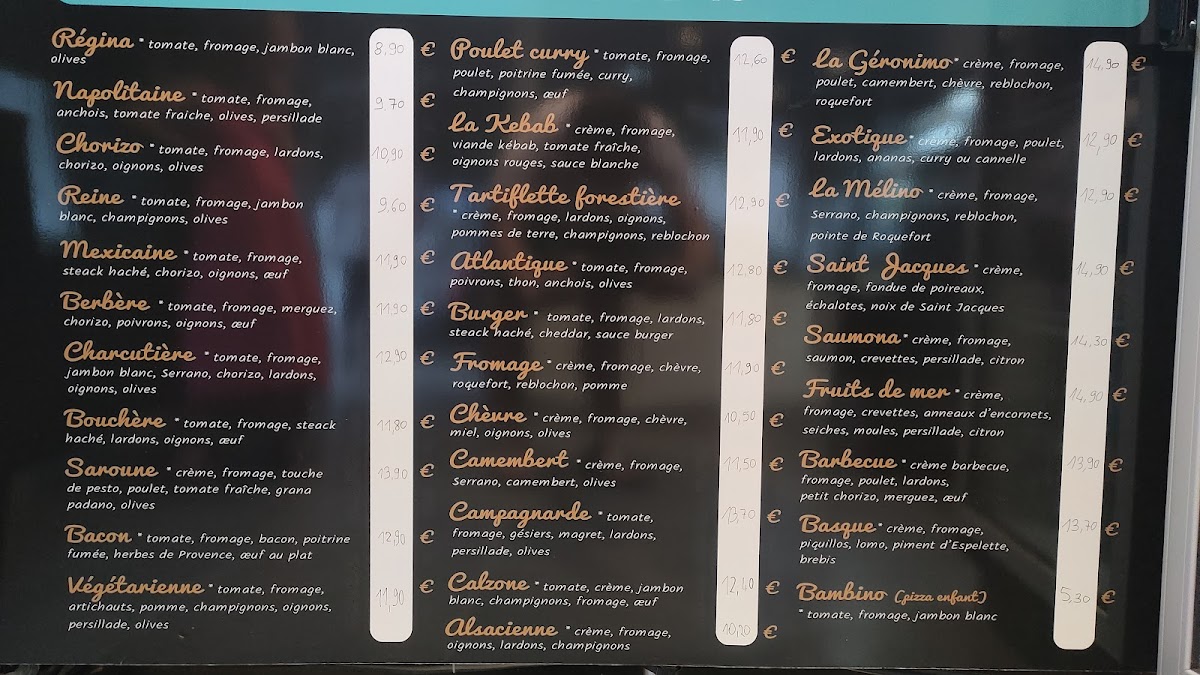 Régina * tomate, fromage, jambon blanc, 8,90 €
olives
Napolitaine * tomate, fromage, 9,70 €
anchois, tomate fraiche, olives, persillade
Chorizo * tomate, fromage, lardons, 10,90 €
chorizo, oignons, olives
Reine * tomate, fromage, jambon 9,60 €
blanc, champignons, olives
Mexicaine * tomate, fromage, 11,90 €
steack haché, chorizo, oignons, œuf
Berbère * tomate, fromage, merguez, 11,90 €
chorizo, poivrons, oignons, œuf
Charcutière * tomate, fromage, 12,90 €
jambon blanc, Serrano, chorizo, lardons,
oignons, olives
Bouchère * tomate, fromage, steack 11,80 €
haché, lardons, oignons, œuf
Saroune * crème, fromage, touche 13,90 €
de pesto, poulet, tomate fraîche, grana
padano, olives
Bacon * tomate, fromage, bacon, poitrine 12,90 €
fumée, herbes de Provence, œuf au plat
Végétarienne * tomate, fromage, 11,90 €
artichauts, pomme, champignons, oignons,
persillade, olives
Poulet curry * tomate, fromage, 12,60 €
poulet, poitrine fumée, curry,
champignons, œuf
La Kebab * crème, fromage, 11,90 €
viande kébab, tomate fraîche,
oignons rouges, sauce blanche
Tartiflette forestière 12,90 €
* crème, fromage, lardons, oignons,
pommes de terre, champignons, reblochon
Atlantique * tomate, fromage, 12,80 €
poivrons, thon, anchois, olives
Burger * tomate, fromage, lardons, 11,80 €
steack haché, cheddar, sauce burger
Fromage * crème, fromage, chèvre, 11,90 €
roquefort, reblochon, pomme
Chèvre * crème, fromage, chèvre, 10,50 €
miel, oignons, olives
Camembert * crème, fromage, 11,50 €
Serrano, camembert, olives
Campagnarde * tomate, 13,70 €
fromage, gésiers, magret, lardons,
persillade, olives
Calzone * tomate, crème, jambon 12,40 €
blanc, champignons, fromage, œuf
Alsacienne * crème, fromage, 10,20 €
oignons, lardons, champignons
La Géronimo * crème, fromage, 14,90 €
poulet, camembert, chèvre, reblochon,
roquefort
Exotique * crème, fromage, poulet, 12,90 €
lardons, ananas, curry ou cannelle
La Mélino * crème, fromage, 12,90 €
Serrano, champignons, reblochon,
pointe de Roquefort
Saint Jacques * crème, 14,90 €
fromage, fondue de poireaux,
échalotes, noix de Saint Jacques
Saumona * crème, fromage, 14,30 €
saumon, crevettes, persillade, citron
Fruits de mer * crème, 14,90 €
fromage, crevettes, anneaux d'encornets,
seiches, moules, persillade, citron
Barbecue * crème barbecue, 13,90 €
fromage, poulet, lardons,
petit chorizo, merguez, œuf
Basque * crème, fromage, 13,70 €
piquillos, lomo, piment d'Espelette,
brebis
Bambino (pizza enfant) 5,30 €
* tomate, fromage, jambon blanc